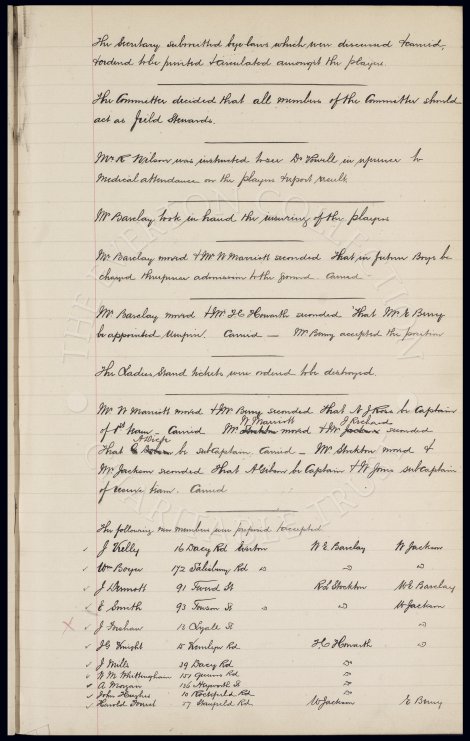 The Secretary submitted bye laws which were discussed & carried,
& ordered to be printed & circulated amongst the players.
The Committee decided that all members of the Committee should
act as Feild Stewards.
Mr R Wilson was instructed to see Dr Powell in reference to
Medical attendance on the players & report result.
Mr Barclay took in hand the insuring of the players
Mr Barclay moved & Mr W Marriott seconded That in future Boys be
charged threepence admission to the ground. Carried
Mr Barclay moved & Mr H Howarth seconded That Mr E Berry
be appointed Umpire. Carried — Mr Berry accepted the position
The Ladies Stand tickets were ordered to be destroyed.
Mr W Marriott moved & Mr Berry seconded That N J Ross be Captain
W Marriott J Prichard
of 1st team — Carried Mr Stockton moved & Mr Jackson seconded
That be sub captain. Carried — Mr Stockton moved &
Mr Jackson seconded That be Captain & W Jones sub captain
of reserve team. Carried
The following new members were proposed & accepted
J Kelly 16 Dacy Rd Everton W E Barclay W Jackson
Wm Boyer 172 Salesbury Rd do do do
J Dermott 91 Tweed St R Stockton W E Barclay
E Smith 93 St do do W Jackson
J 12 Lyall St do
J G Knight 15 Kemlyn Rd H Howarth do
J Mills 39 Dacy Rd do
W M Whittingham 151 Queens Rd do
A Morgan 136 Heyworth St do
John Hughes 10 Rockfield Rd do
Harold 57 Stanfield Rd W Jackson E Berry
THE EVERTON COLLECTION
CHARITABLE TRUST